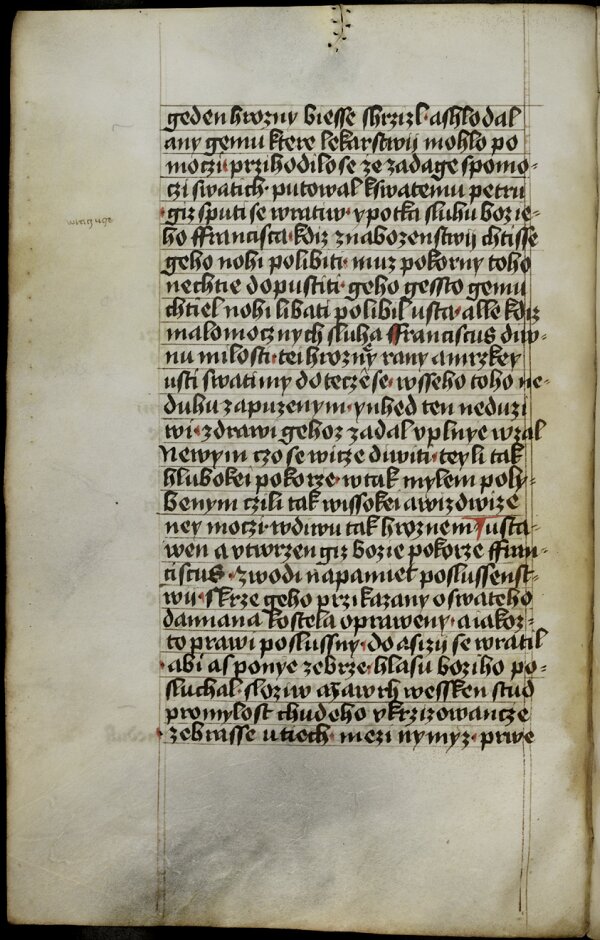 geden hrozny biesse shrzizl· a shlodal
any gemu ktere lekarstwij mohlo po
moczi· przihodilo se ze zadage spomo-
czi swatich· putowal k swatemu petru
· giz s puti se wratiw· y potka sluhu bozie-
ho ffrancisca· kdiz z nabozenstwij chtisse
geho nohi polibiti· muz pokorny toho
nechtie dopustiti· geho gessto gemu
chtiel nohi libati polibil usta· alle kdiz
malomocznych sluha ffranciscus diw-
nu milosti· tei hrozny rany a mrzkey
usti swatimy doteczese· wsseho toho ne-
duhu zapuzenym· ynhed ten neduzi
wi· zdrawi gehoz zadal uplnye wzal
Newym czo se wicze diwiti· teyli tak
hlubokei pokorze· w tak mylem poly-
benym czili tak wissokei a wizdwize
ney moczi· w diwu tak hroznem usta-
wen a utwrzen giz bozie pokorze ffran-
ciscus· zwodi na pamiet poslussenst-
wii· skrze geho przikazany o swateho
damiana kostela opraweny· a iakoz-
to prawi poslussny· do asizij se wratil
· abi asponye zebrze· hlasu boziho po-
sluchal· sloziw a zawrh wessken stud
pro mylost chudeho ukrzizowancze
· zebrasse u tiech· mezi nymyz· prwe